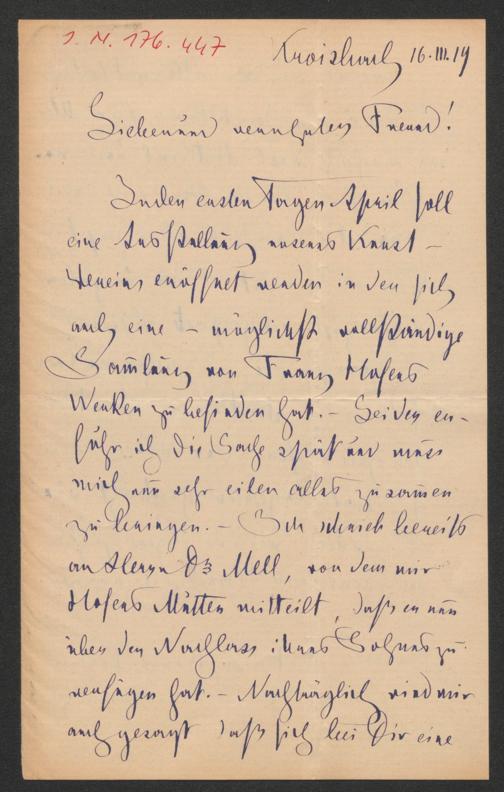 J. N. 176.447
Kroisbach 16.III.19
Lieber und verehrter Freund!
In den ersten Tagen April soll
eine Ausstellung unseres Kunst-
Vereins eröffnet werden in der sich
auch eine – möglichst vollständige
Sam̅lung von Franz Hofers
Werken zu befinden hat. – Leider er-
fuhr ich die Sache spät und muss
mich nun sehr eilen alles zusam̅en
zu bringen. – Ich schrieb bereits
an Herrn Dr Mell, von dem mir
Hofers Mutter mitteilt, daß er nun
über den Nachlass ihres Sohnes zu
verfügen hat. – Nachträglich wird mir
auch gesagt daß sich bei Dir eine